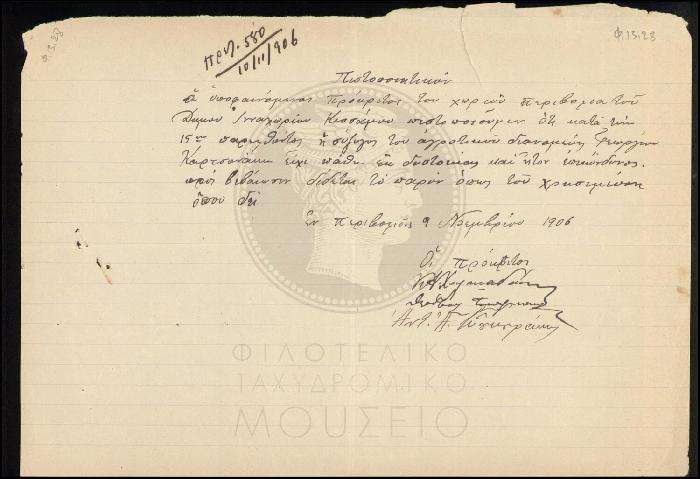 Φ.13.28
Φ.13.28
Πρωτ. 580
10/11/906
Πιστοποιητικόν
οἱ ὑποφαινόμενοι πρόκριτοι τοῦ χωριοῦ Περιβόλια τοῦ
Δήμου Ινναχωρίου Κισσάμου πιστοποιοῦμεν ὅτι κατά την
15ην παρελθόντος ἡ σύζυγος τοῦ ἀγροτικοῦ διανομέως Γεωργίου
Καρτσωνάκη εἶχε πάθη ἐκ δυστοκίας καί ἦτον ἐπικίνδυνος.
πρός βεβαίωσιν δίδεται τό παρόν ὅπως τοῦ χρησιμεύση
ὅπου δεῖ
Ἐν Περιβολίοις 9 Νοεμβρίου 1906
Οἱ πρόκριτοι
Ἀντ. Ἀ.
ΦΙΛΟΤΕΛΙΚΟ
ΤΑΧΥΔΡΟΜΙΚΟ
ΜΟΥΣΕΙΟ